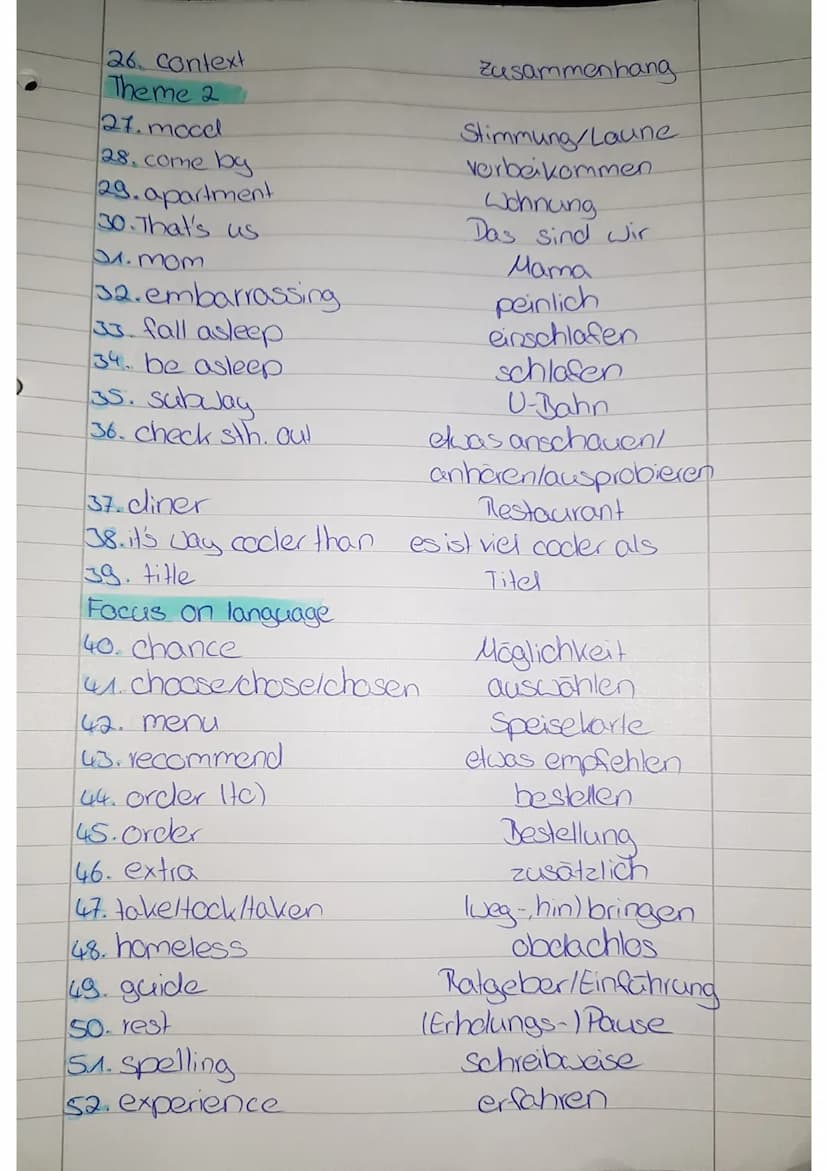 26. context zusammenhang
Theme 2
27. mood Stimmung/Laune
28. come by vorbeikommen
29. apartment Wohnung
30. That's us Das sind wir
31. mom Mama
32. embarrassing peinlich
33. fall asleep einschlafen
34. be asleep schlafen
35. subway U-Bahn
36. check sth. out etwas anschauen/
anhören/ausprobieren
37. diner Restaurant
38. it's way cooler than es ist viel cooler als
39. title Titel
Focus on language
40. chance Möglichkeit
41. choose/chose/chosen auswählen
42. menu Speisekarte
43. recommend etwas empfehlen
44. order (to) bestellen
45. order Bestellung
46. extra zusätzlich
47. take/took/taken (weg-, hin) bringen
48. homeless obdachlos
49. guide Ratgeber/Einführung
50. rest (Erholungs-) Pause
51. spelling Schreibweise
52. experience erfahren